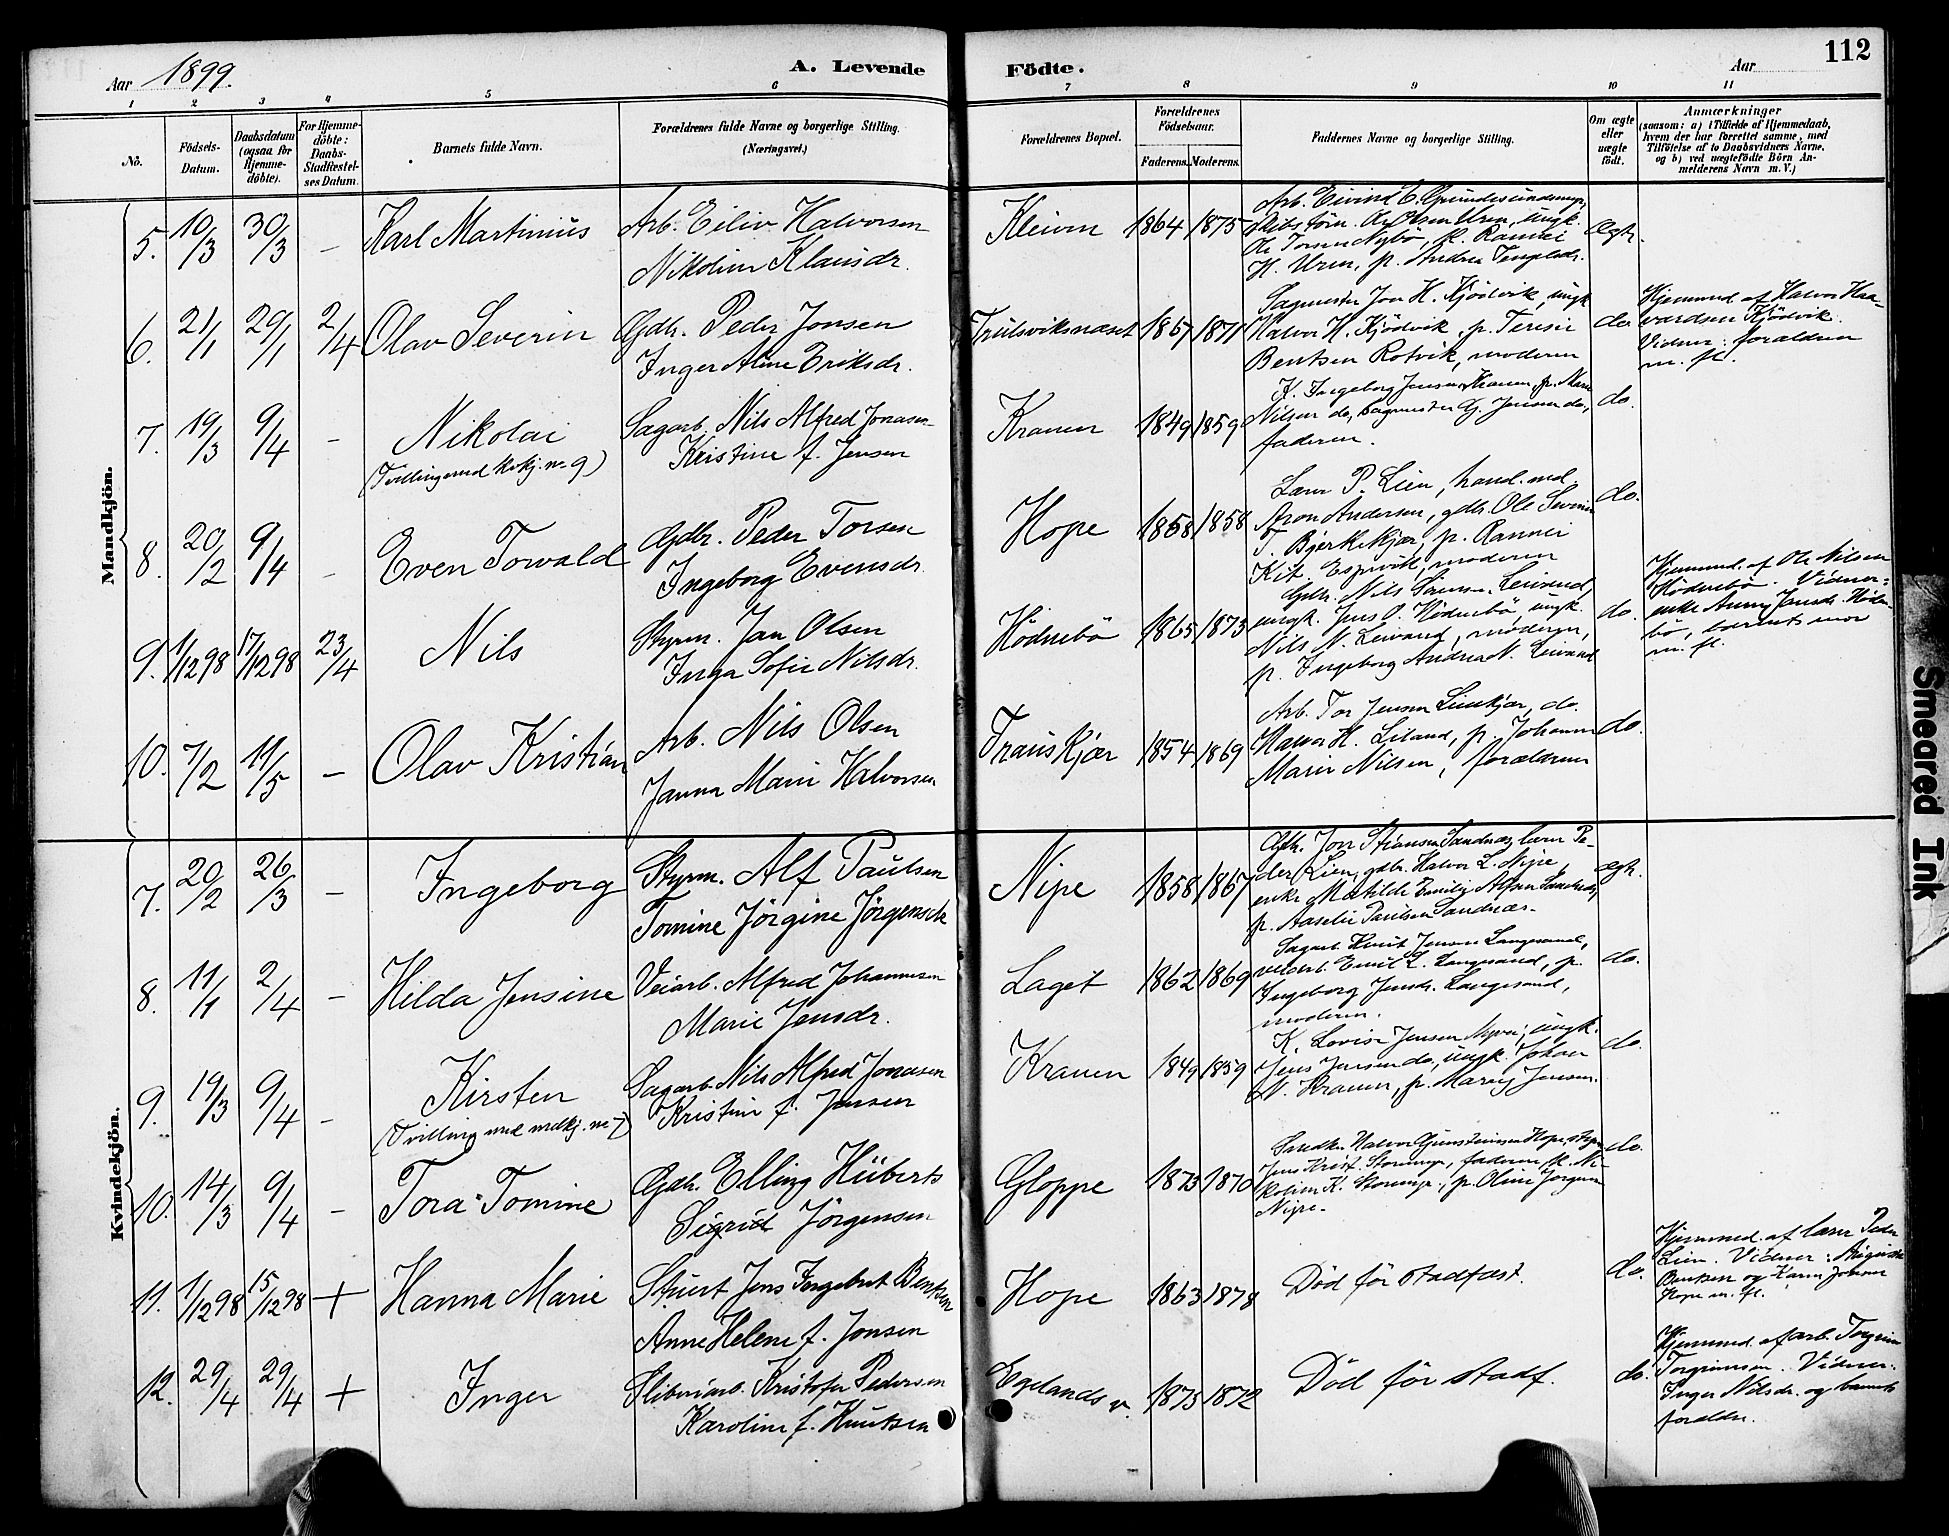 Aar 1899.
A. Levende Födte.
Aar
112
1 2 3 4 5 6 7 8 9 10 11
No.
Födsels-
Datum.
Daabsdatum
(ogsaa for
Hjemme-
döbte).
For Hjemme-
döbte:
Daabs-
Stadfæstel-
ses Datum.
Barnets fulde Navn.
Forældrenes fulde Navne og borgerlige Stilling.
(Næringsvei.)
Forældrenes Bopæl.
Forældrenes
Födselsaar.
Faderens. Moderens.
Faddernes Navne og borgerlige Stilling.
Om ægte
eller
uægte
födt.
Anmærkninger
(saasom: a) i Tilfælde af Hjemmedaab,
hvem der har forrettet samme, med
Tilföielse af to Daabsvidners Navne,
og b) ved uægtefödte Börn An-
melderens Navn m. V.)
Mandkjön.
5. 10/3 30/3 – Karl Martinius
Arb. Eiliv Halvorsen
Nikoline Klausdr.
Kleiven 1864 1875
Arb. Eivind E.
Ole Torsen Nybö, k. Rannei
H. Uren, p. Andrea
Ægt.
6. 21/1 29/1 2/4 Olav Severin
Gdbr. Peder Jonsen
Inger Aline Eriksdr.
Trulsviksnæset 1867 1871
Sagmester Jon H. Kjödvik, ungk.
Halvor H. Kjödvik, p. Teresie
Bentsen Rotvik, moderen
do
Hjemmed. af Halvor Haa-
vardsen Kjödvik.
Vidner: forældrene
m. fl.
7. 19/3 9/4 – Nikolai
(Tvilling med kvkj. no 9)
Sagarb. Nils Alfred Jonasen
Kristine f. Jensen
Kranen 1849 1859
K. Ingeborg Jensen Kranen, p. Marie
Nilsen do, Sagmester G. Jensen do,
faderen.
do.
8. 20/2 9/4 – Even Torvald
Gdbr. Peder Torsen
Ingeborg Evensdr.
Hope 1858 1858
Lærer P. Lien, hand. med
Aron Andersen, gdbr. Ole Severin
T. Bjerkekjær, p. Rannei
Espevik, moderen
do.
9. 1/12 98 17/12 98 23/4 Nils
Styrm. Jan Olsen
Inga Sofie Nilsdr.
Hödnebö 1865 1873
Gdbr. Nils Leivand,
ungk. Jens O. Hödnebö, ungk.
Nils N. Leivand, moderen,
p. Ingeborg Andrea N. Leivand
do.
Hjemmed. af Ole Nilsen
Hödnebö. Vidner:
enke Anne Jensdr. Hödne-
bö, barnets mor
m. fl.
10. 7/2 11/5 – Olav Kristian
Arb. Nils Olsen
Janna Marie Halvorsen
Transkjær 1854 1869
Arb. Tor Jensen Lindkjær, do.
Halvor H. Leland, p. Johanne
Marie Nilsen, forældrene
do.
Kvindekjön.
7. 20/2 26/3 – Ingeborg
Styrm. Alf Paulsen
Tomine Jörgine Jörgensdr
Nipe 1858 1867
Gdbr. Jon Stiansen Sandnæs, lærer Pe-
der Lien, gdbr. Halvor L. Nipe,
enke Matilde Emilie Alfsen Sandnæs,
p. Aaselie Paulsen Sandnæs.
Ægt.
8. 11/1 2/4 – Hilda Jensine
Veiarb. Alfred Johannesen
Marie Jensdr.
Laget 1862 1869
Sagarb. Knut Jensen Langesand,
veiarb. Emil L. Langesand, p.
Ingeborg Jensdr. Langesand,
moderen.
do.
9. 19/3 9/4 – Kirsten
(Tvilling med mdkj. no 7)
Sagarb. Nils Alfred Jonasen
Kristine f. Jensen
Kranen 1849 1859
K. Lovise Jensen Myren, ungk.
Jens Jensen do, ungk. Johan
N. Kranen, p. Maren Jensen.
do.
10. 14/3 9/4 – Tora Tomine
Gdbr. Elling Hüberts
Sigrid Jörgensen
Gloppe 1873 1870
Halvor Gunsteinsen Hope, styrm
Jens Krist. Storenip, faderen, k. Ni-
koline K. Storenip, p. Oline Jörgensen
Nipe.
do.
11. 1/12 98 15/12 98 + Hanna Marie
Stuert Jens Ingebret Bentsen
Anne Helene f. Jonsen
Hope 1863 1878
Död för stadfæst.
do.
Hjemmed. af lærer Peder
Lien. Vidner: Auguste
Bentsen og Karen Jonsen
Hope m. fl.
12. 29/4 29/4 + Inger
Sliberiarb. Kristofer Pedersen
Karoline f. Knutsen
Egelands v. 1875 1872
Död för stadf.
do.
Hjemmed. af arb. Torgrim
Torgrimsen. Vidner:
Inger Nilsdr. og barnets
forældre.
Smeared Ink